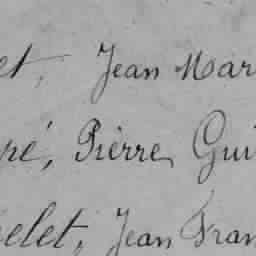 et, Jean Mar
ré, Pierre, Gui
elet, Jean Fran